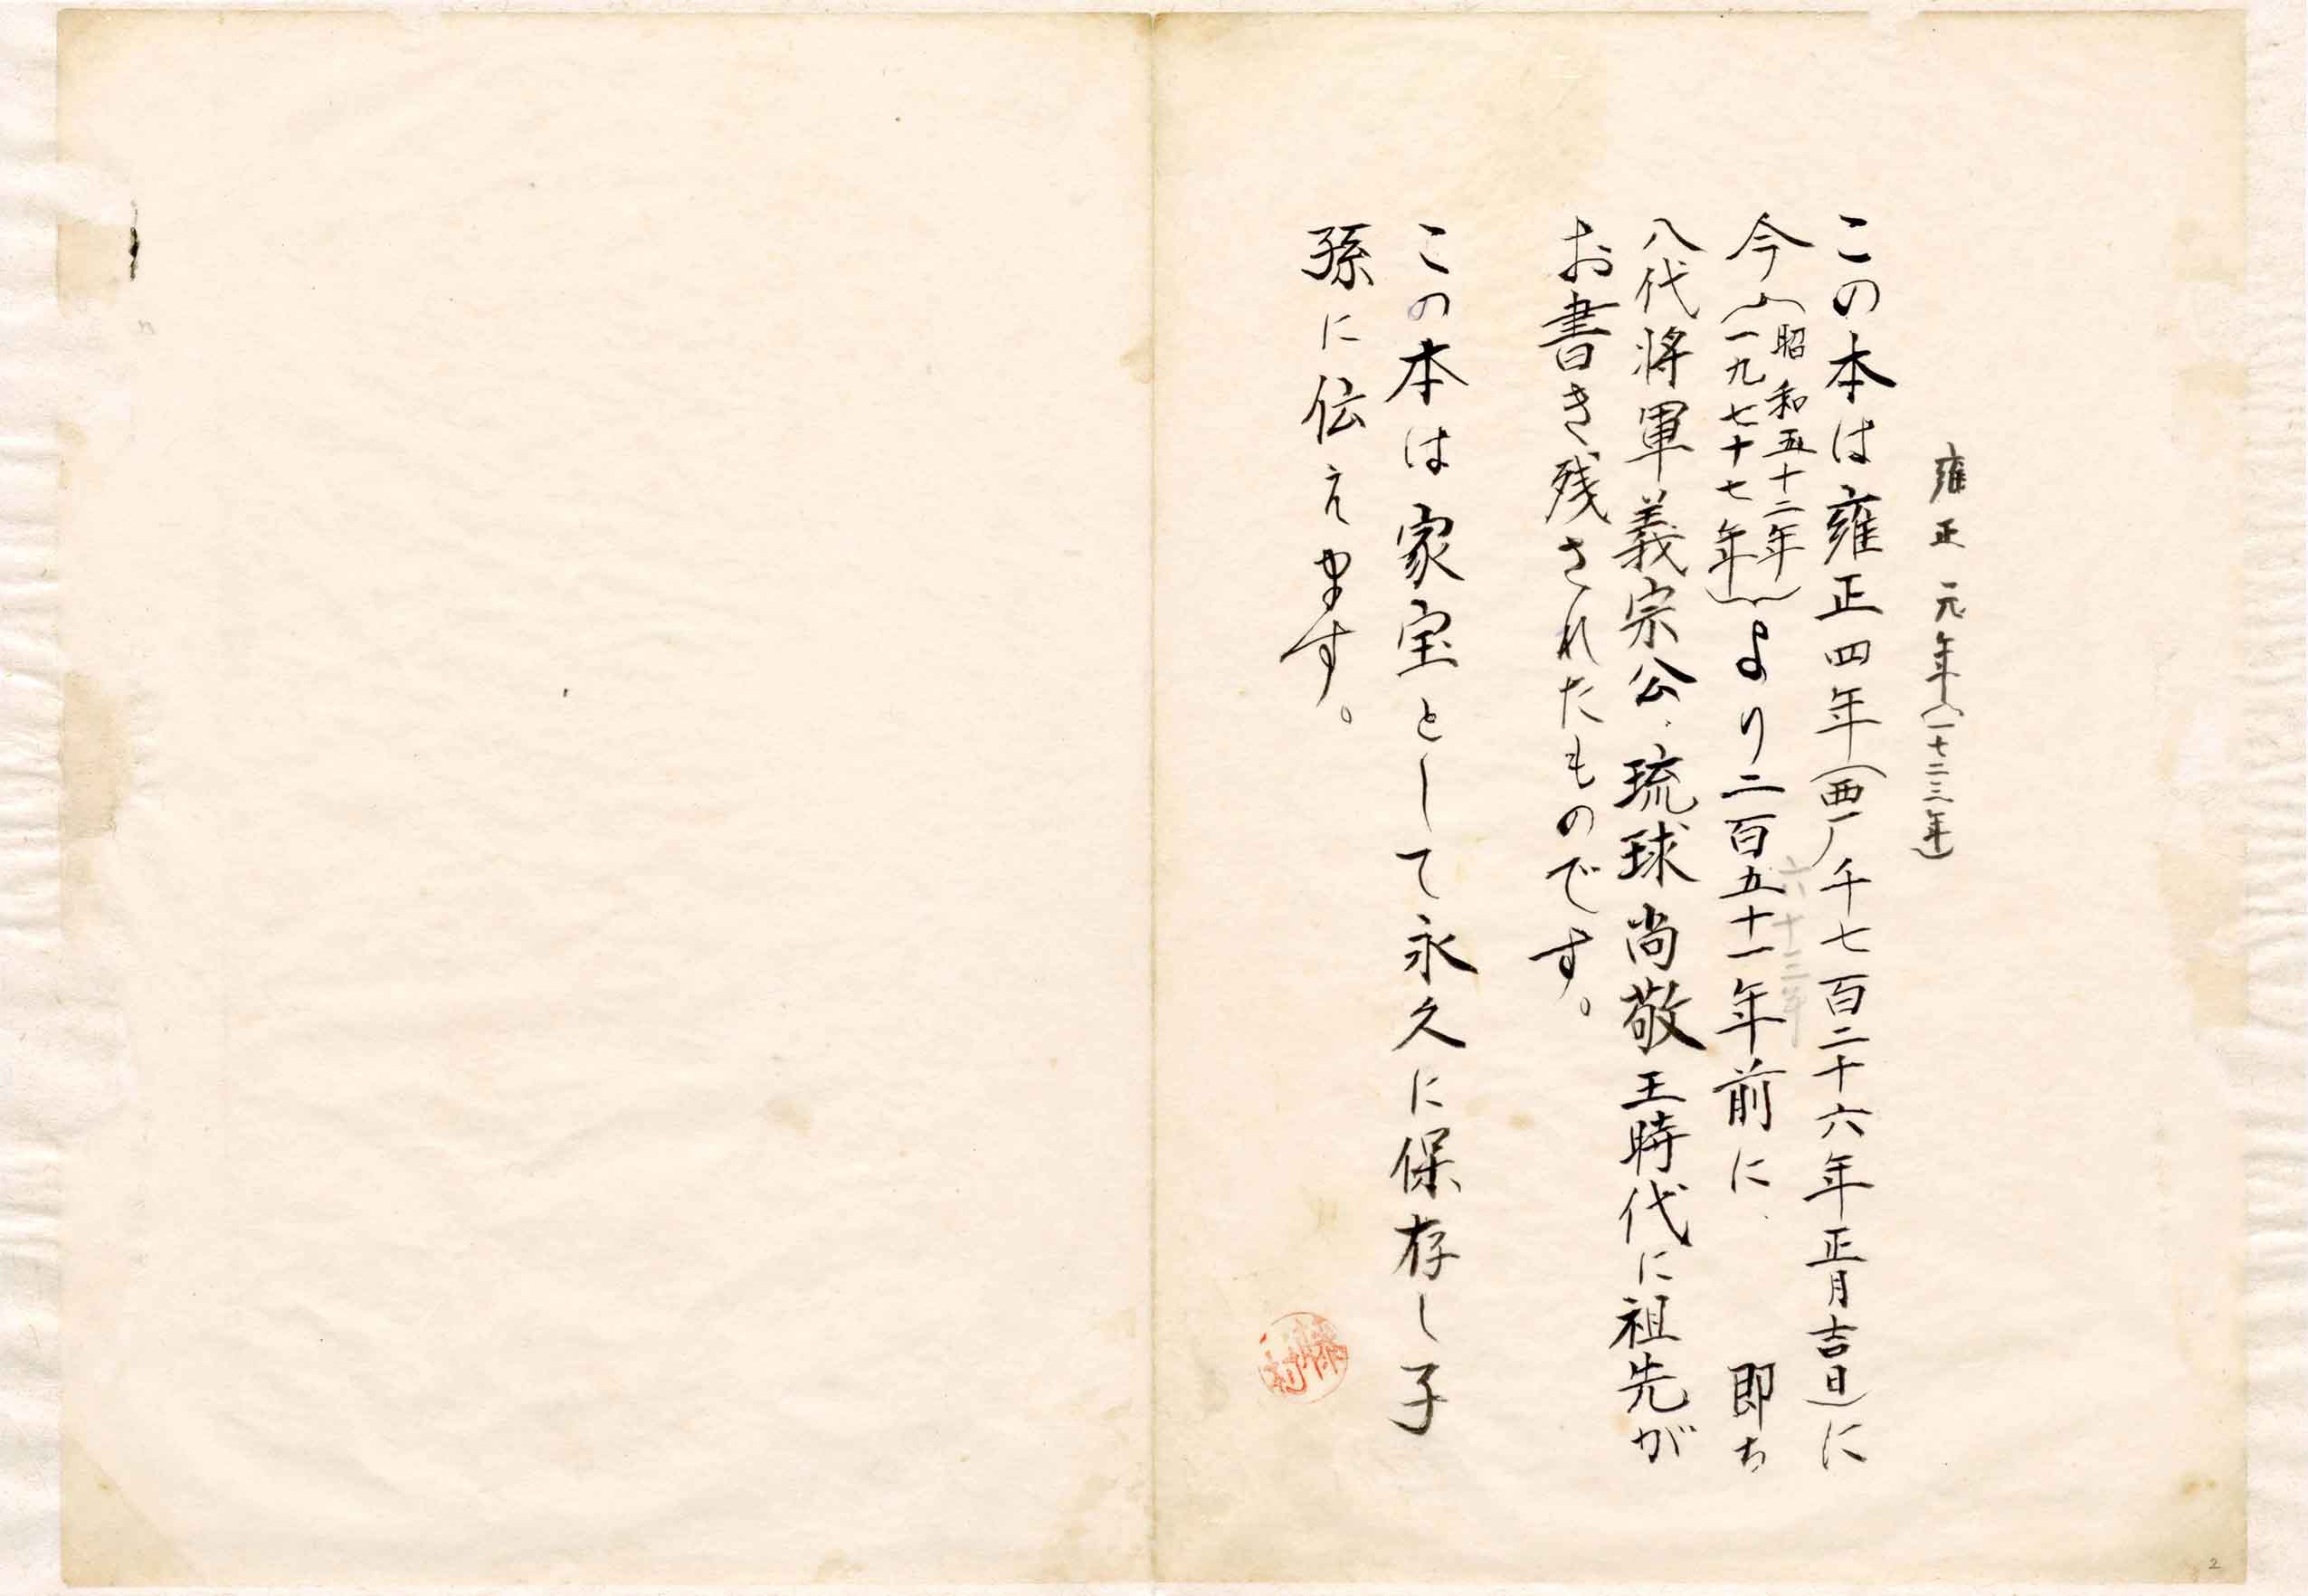 雍正元年(一七二三年)
この本は雍正四年(西厂)千七百二十六年正月吉日)に
今(昭和五十二年)
(一九七十七年)より二百五十一年前に 即ち
六十三年
八代将軍義宗公、琉球尚敬王時代に祖先が
お書き残されたものです。
この本は家宝として永久に保存し子
孫に伝えます。
2